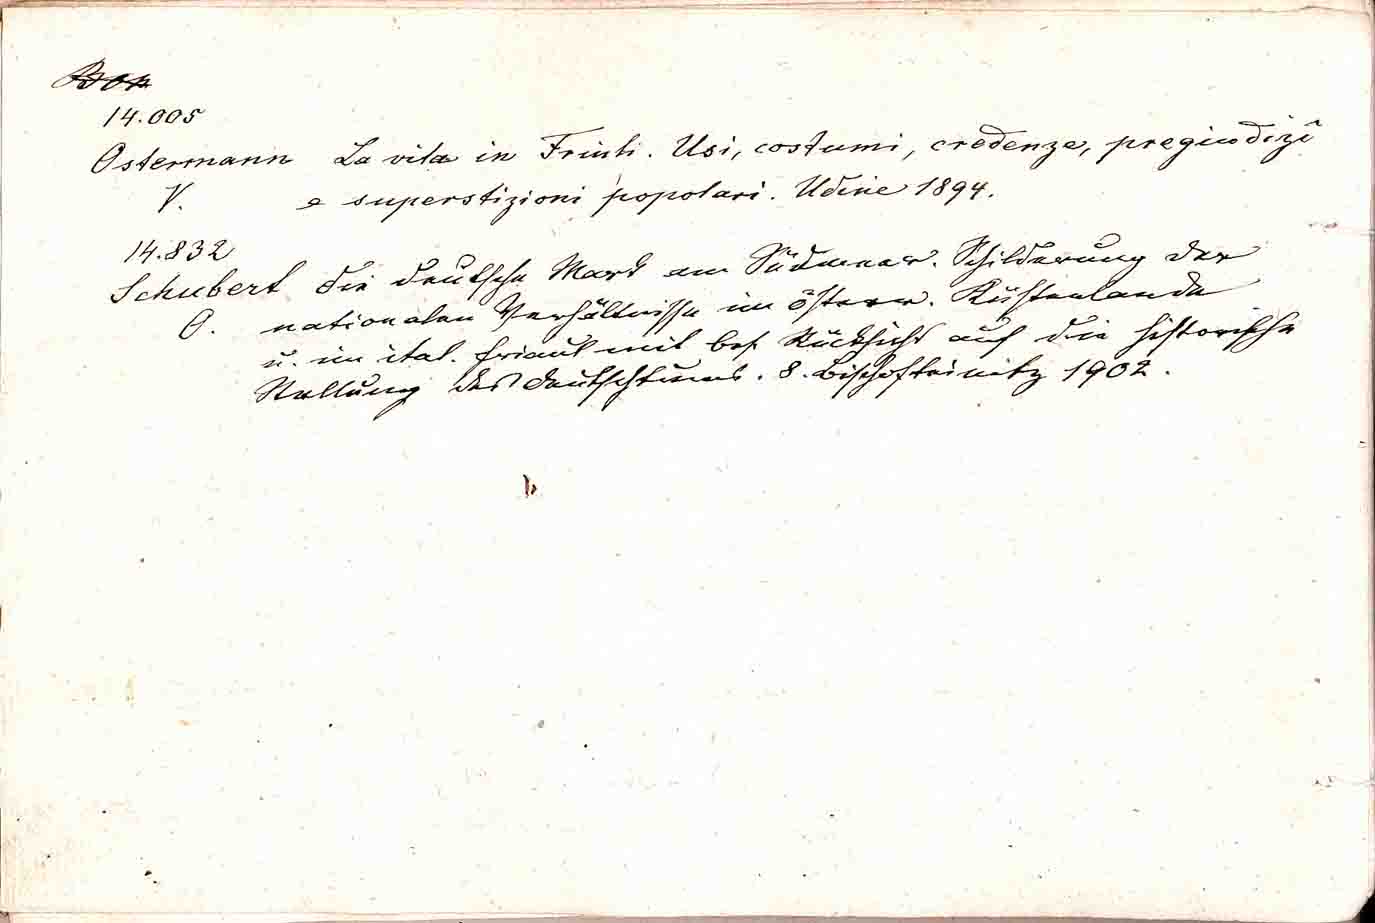 14.005
Ostermann La vita in Friuli. Usi, costumi, credenze, pregiudizî
V. e superstizioni popolari. Udine 1894.
14.832
Schubert Die deutsche Mark am Südmeer. Schilderung der
O. nationalen Verhältnisse im österr. Küstenlande
u. im ital. Friaul mit bes. Rücksicht auf die historische
Stellung des Deutschtums. 8. Bischofteinitz 1902.